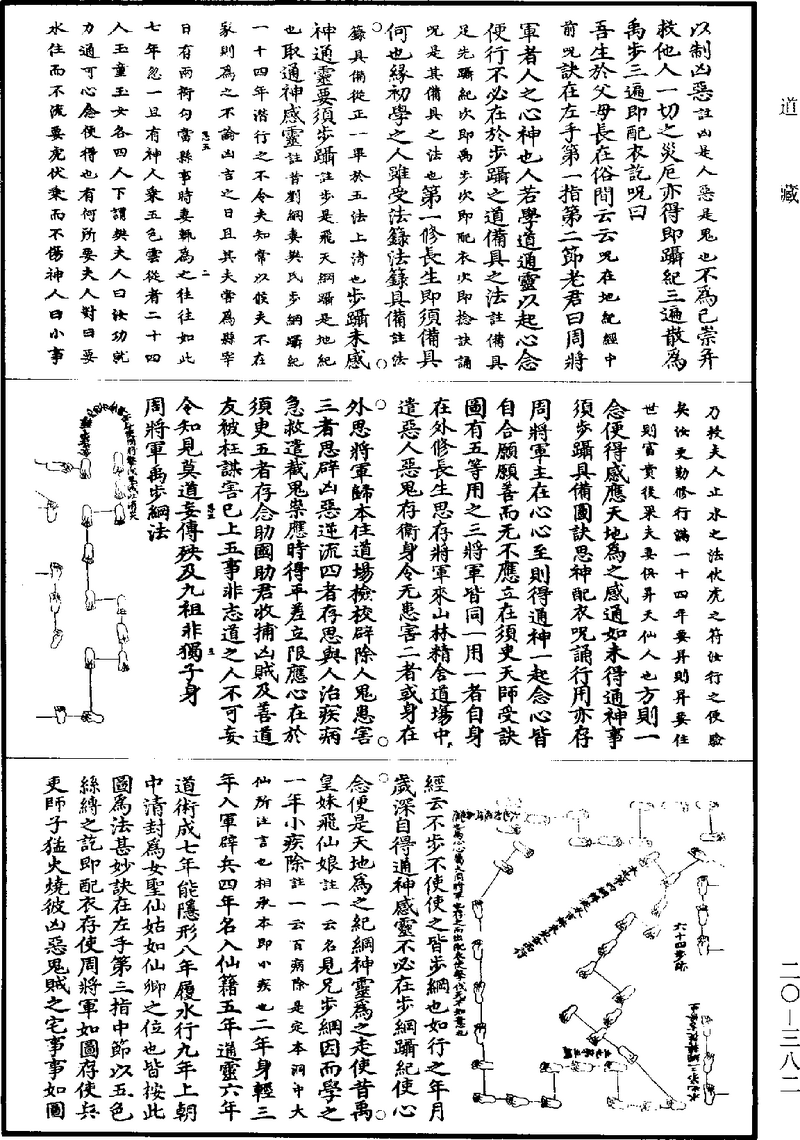 道藏
以制凶惡註凶是人惡是鬼也不為已崇弃
救他人一切之災厄亦得即躡紀三遍散為
禹步三遍即配衣訖呪曰
吾生於父母長在俗間云云呪在地紀經中
前呪訣在左手第一指第二節老君曰周將
軍者人之心神也人若學道通靈以起心念
便行不必在於步躡之道備具之法註備具
足先躡紀次即禹步次即配衣次即捻訣誦
呪是其備具之法也第一修長生即須備具
何也緣初學之人雖受法籙法籙具備註法
籙具備從正一畢於五法上清也步躡未感
神通靈要須步躡註步是飛天綱躡是地紀
也取通神感靈註昔劉綱妻樊氏步綱躡紀
一十四年潛行之不令夫知常以候夫不在
家則為之不論凶吉之日且其夫常為縣宰
日有兩衙勾當縣事時妻執為之往往如此
七年忽一旦有神人乘五色雲從者二十四
人玉童玉女各四人下謂樊夫人曰汝功就
力通可心念便得也有何所要夫人對曰要
水住而不流要虎伏乘而不傷神人曰小事
乃教夫人止水之法伏虎之符汝行之便驗
矣汝更勤修行滿一十四年要昇則昇要住
世則富貴後果夫妻俱昇天仙人也方則一
念便得感應天地為之感通如未得通神事
須步躡具備圖訣思神配衣呪誦行用亦存
周將軍主在心心至則得通神一起念心皆
自合願願善而无不應立在須臾天師受訣
圖有五等用之三將軍皆同一用一者自身
在外修長生思存將軍來山林精舍道場中
遣惡人惡鬼存衛身令无患害二者或身在
外思將軍歸本住道場檢校辟除人鬼患害
三者思辟凶惡逆流四者存思與人治疾病
急救遣截鬼崇應時得平差立限應心在於
須臾五者存念助國助君收捕凶賊及善道
友被枉謀害已上五事非志道之人不可妄
令知見莫道妄傳殃及九祖非獨子身
周將軍禹步綱法
六十四步跡
經云不步不使使之皆步綱也如行之年月
歲深自得通神感靈不必在步綱躡紀使心
念便是天地為之紀綱神靈為之走使昔禹
皇妹飛仙娘註一云名見兄步綱因而學之
一年小疾除註一云百病除是定本洞中大
仙所注言也相承本即小疾也二年身輕三
年入軍辟兵四年名入仙籍五年通靈六年
道術成七年能隱形八年履水行九年上朝
中清封為女聖仙姑如仙卿之位也皆按此
圖為法甚妙訣在左手第三指中節以五色
絲縛之訖即配衣存使周將軍如圖存使兵
吏師子猛火燒彼凶惡鬼賊之宅事事如圖
二〇—三八二